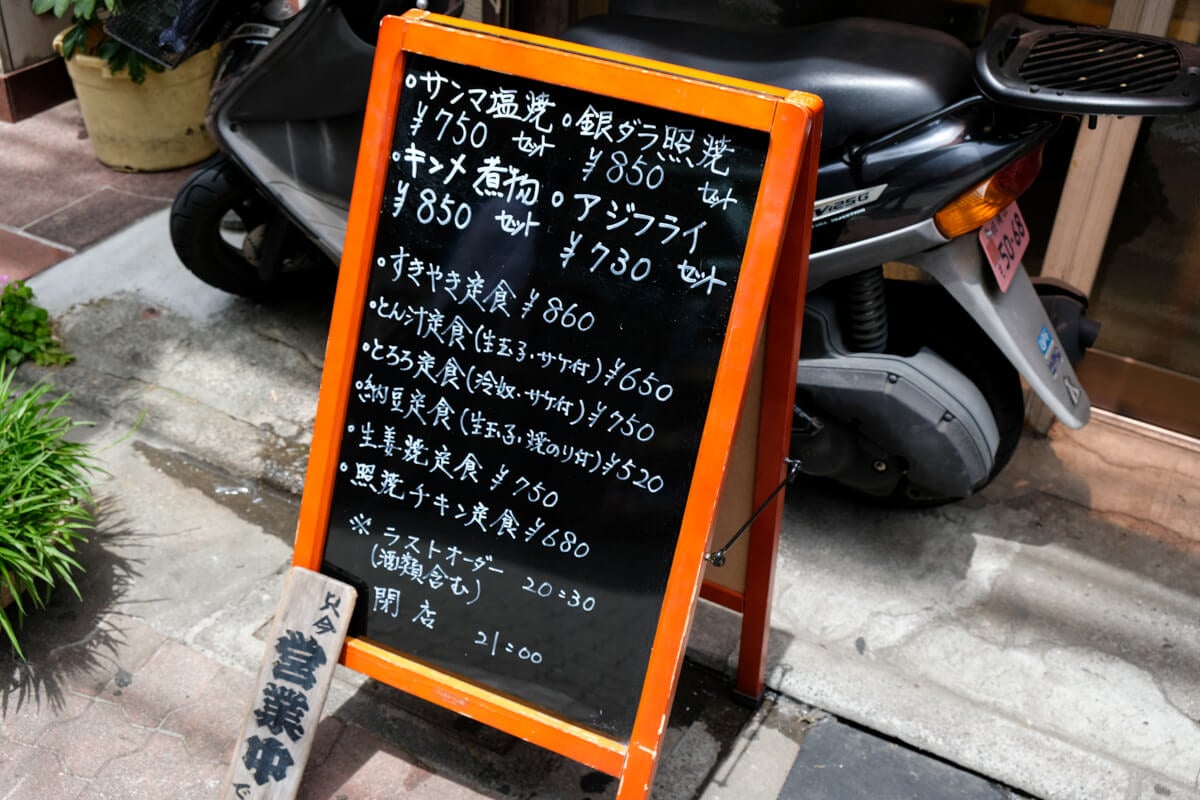 ○サンマ塩焼
¥750 セット
○銀ダラ照焼
¥850 セット
・キンメ煮物
¥850 セット
○アジフライ
¥730 セット
・すきやき定食 ¥860
・とん汁定食(生玉子・サケ付) ¥650
・とろろ定食(冷奴・サケ付) ¥750
・納豆定食(生玉子・焼のり付) ¥520
・生姜焼定食 ¥750
・照焼チキン定食 ¥680
※ ラストオーダー 20:30
(酒類含む)
閉店 21:00
只今
営業中
で
V125G
50-68